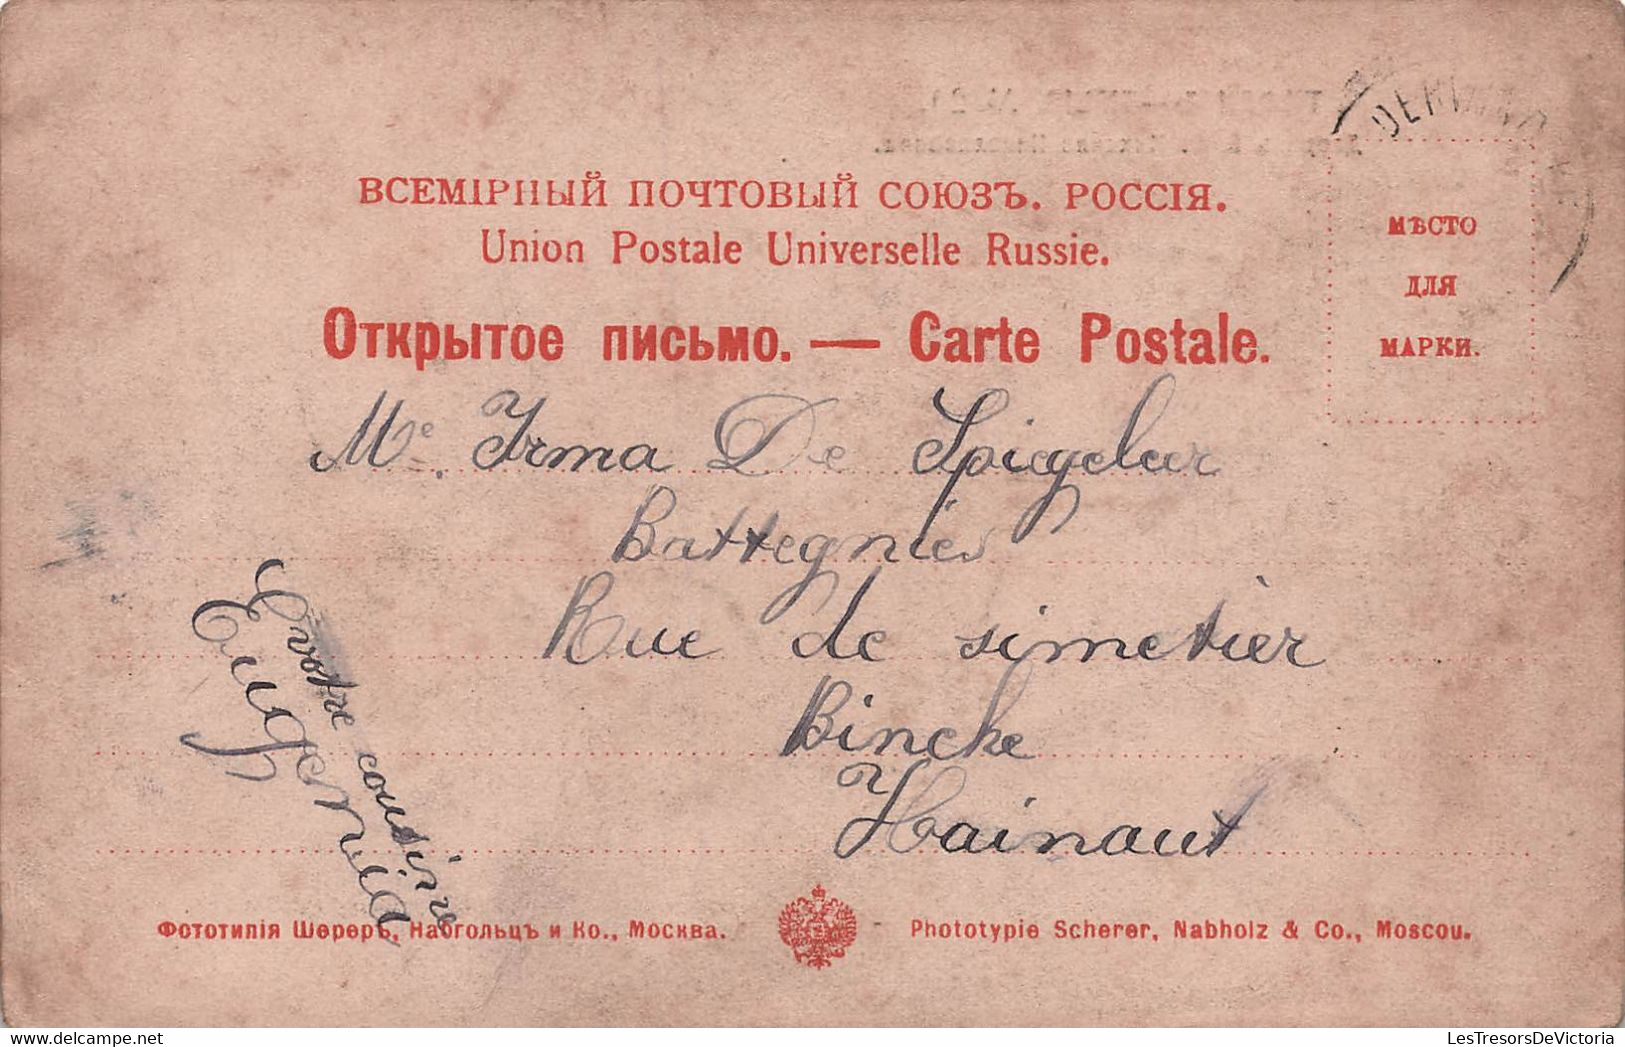 ВСЕМІРНЫЙ ПОЧТОВЫЙ СОЮЗЪ. РОССІЯ.
Union Postale Universelle Russie.
Открытое письмо. — Carte Postale.
МѢСТО
ДЛЯ
МАРКИ.
Me. Irma De Spiegeleer
Battegnies
Rue de simetier
Binche
Hainaut
votre cousine
Eugenia
Фототипія Шереръ, Набгольцъ и Ко., Москва.
Phototypie Scherer, Nabholz & Co., Moscou.
LesTresorsDeVictoria